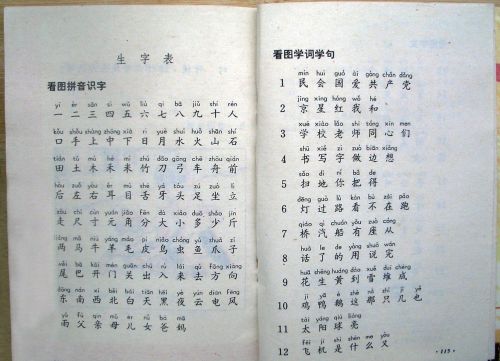 生字表
看图拼音识字
yī èr sān sì wǔ liù qī bā jiǔ shí rén
一 二 三 四 五 六 七 八 九 十 人
kǒu shǒu shàng zhōng xià rì yuè shuǐ huǒ shān shí
口 手 上 中 下 日 月 水 火 山 石
tián tǔ mù hé mǐ zhú dāo gōng chē zhōu qián
田 土 木 禾 米 竹 刀 弓 车 舟 前
hòu zuǒ yòu ěr mù shé yá tóu zú zuò lì
后 左 右 耳 目 舌 牙 头 足 坐 立
zǒu chǐ cùn yuán jiǎo fēn dà xiǎo duō shǎo jīn
走 尺 寸 元 角 分 大 小 多 少 斤
liǎng mǎ niú yáng máo pí niǎo chóng yú zhuǎ zǐ
两 马 牛 羊 毛 皮 鸟 虫 鱼 爪 子
wěi bā kāi mén guān chū rù lái qù fāng xiàng
尾 巴 开 门 关 出 入 来 去 方 向
dōng nán xī běi bái tiān hēi yè yún diàn fēng
东 南 西 北 白 天 黑 夜 云 电 风
yǔ fù qīn mǔ ér nǚ bà mā
雨 父 亲 母 儿 女 爸 妈
看图学词学句
mín huì guó ài gòng chǎn dǎng
1 民 会 国 爱 共 产 党
jīng xīng hóng wǒ hé
2 京 星 红 我 和
xué xiào lǎo shī tóng xīn men
3 学 校 老 师 同 心 们
shū xiě zì zuò biān xiǎng
4 书 写 字 做 边 想
sǎo dì nǐ bǎ de
5 扫 地 你 把 得
dēng guò lù kàn bù zài pǎo
6 灯 过 路 看 不 在 跑
qiáo qì chuán yǒu zuò cóng
7 桥 汽 船 有 座 从
huà le de yòng shuō wán
8 话 了 的 用 说 完
huā shēng huáng dào xuě duī chéng
9 花 生 黄 到 雪 堆 成
jī yā é zhè nà zhī yě
10 鸡 鸭 鹅 这 那 只 几 也
tài yáng qiú liàng
11 太 阳 球 亮
fēi jī shì shén me yòu
12 飞 机 是 什 么 又
·115·